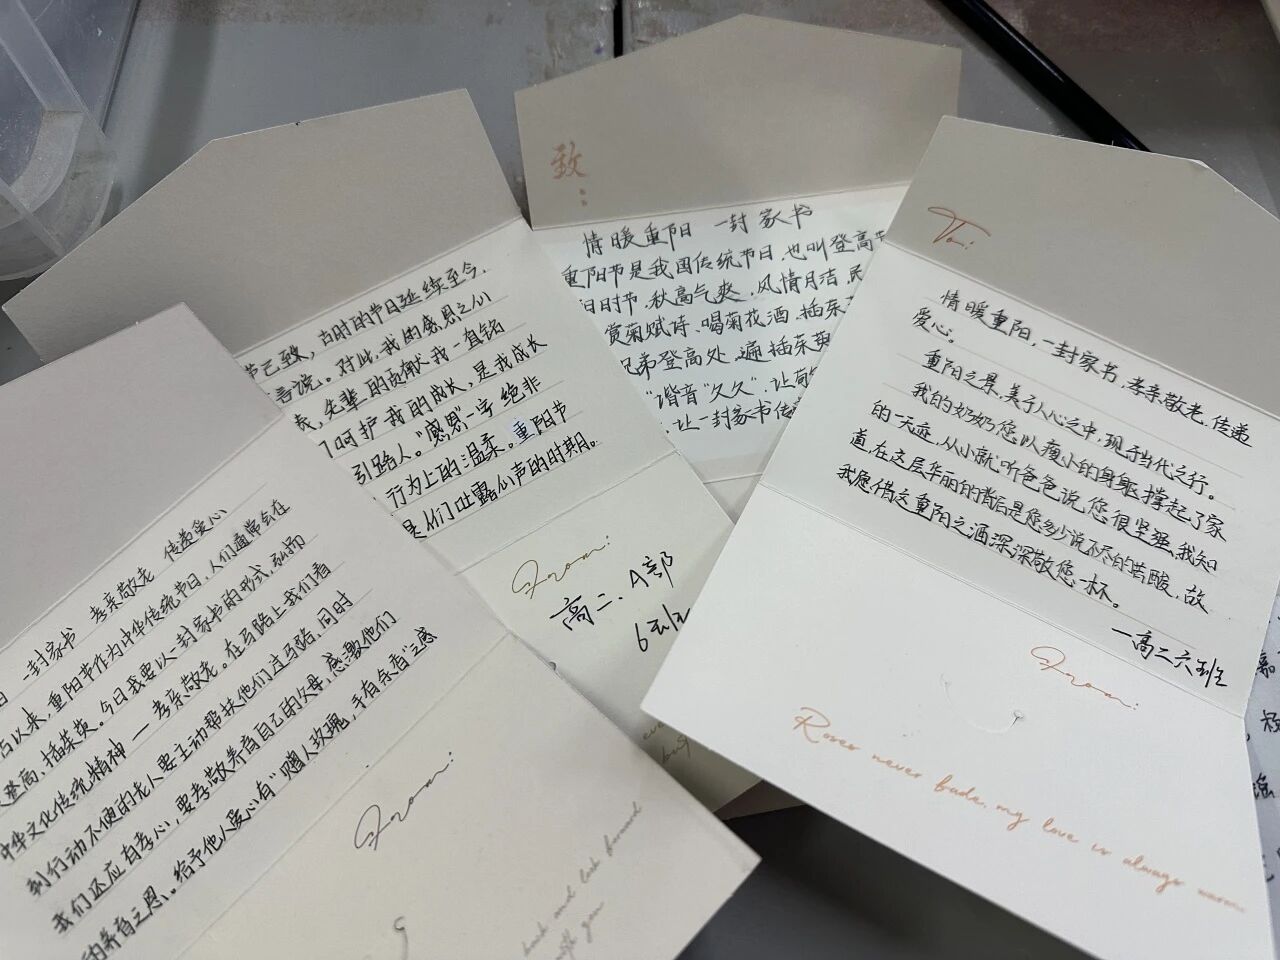 致:
情暖重阳 一封家书
重阳节是我国传统节日,也叫登高节
阳时节,秋高气爽,风情月洁,民
赏菊赋诗、喝菊花酒、插茱萸
兄弟登高处,遍插茱萸
"谐音"久久",让菊
,让一封家书传
节已致,古时的节日延续至今,
言说。对此,我的感恩之们
表,先辈的贡献我一直铭
了呵护我的成长,是我成长
引路人。"感恩"一字绝非
行为上的温柔。重阳节
是人们吐露心声的时期。
From:
高二.A部
6班
To:
情暖重阳,一封家书,孝亲敬老,传递
爱心。
重阳之景,美于人心之中,现于当代之行。
我的奶奶您以瘦小的身躯,撑起了家
的一天亦,从小就听爸爸说,您很坚强,我知
道,在这层华丽的背后是您多少说不尽的苦酸,故
我愿借这重阳之酒深深敬您一杯。
一高二六班
From:
Roses never fade, my love is always warm
一封家书 孝亲敬老 传递爱心
古以来,重阳节作为中华传统节日,人们通常会在
登高、插茱萸。今日我要以一封家书的形式,弘扬
中华文化传统精神——孝亲敬老。在马路上我们看
到行动不便的老人要主动帮扶他们过马路,同时
我们还应有孝心,要孝敬养育自己的父母,感激他们
的养育之恩。给予他人爱心有"赠人玫瑰,手有余香"之感
From:
back and look forward
with you